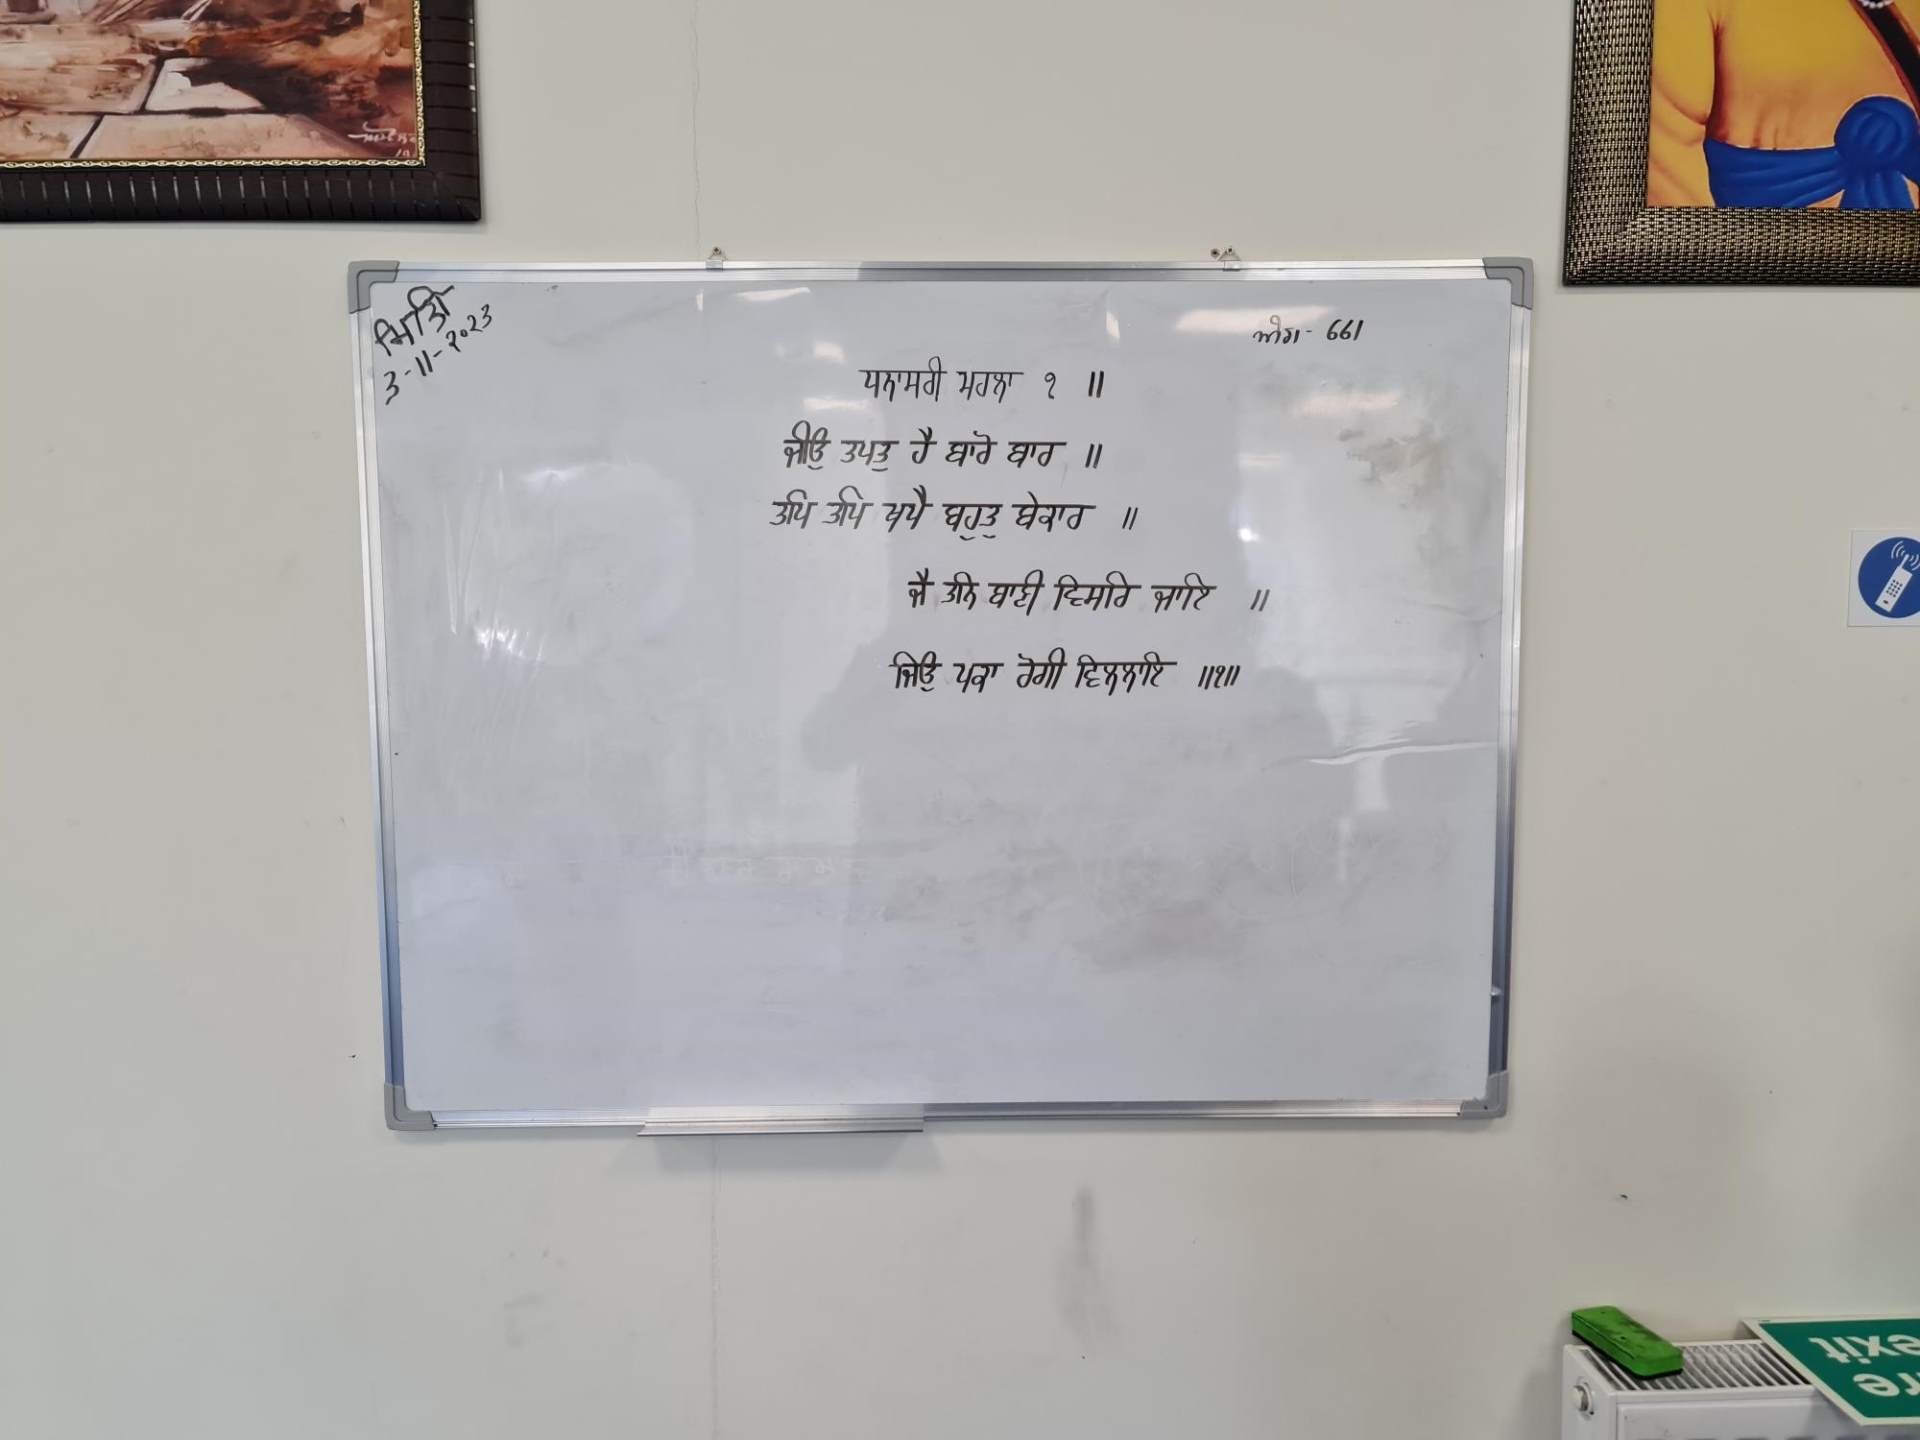 ਮਿਤੀ
3-11-2023
ਅੰਗ- 661
ਧਨਾਸਰੀ ਮਹਲਾ ੧ ॥
ਜੀਉ ਤਪਤੁ ਹੈ ਬਾਰੋ ਬਾਰ ॥
ਤਪਿ ਤਪਿ ਖਪੈ ਬਹੁਤੁ ਬੇਕਾਰ ॥
ਜੈ ਤਨਿ ਬਾਣੀ ਵਿਸਰਿ ਜਾਇ ॥
ਜਿਉ ਪਕਾ ਰੋਗੀ ਵਿਲਲਾਇ ॥੧॥
exit